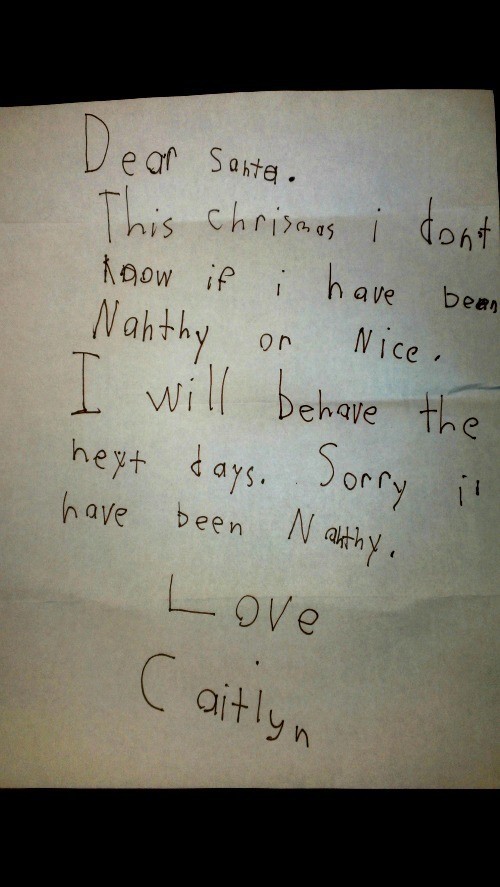 Dear Santa.
This chrismas i dont
know if i have been
Nahthy or Nice.
I will behave the
neyt days. Sorry i
have been Nahthy.
Love
Caitlyn